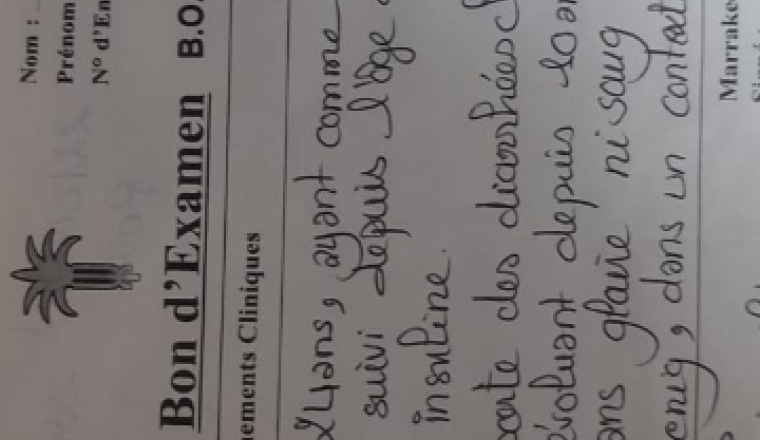 Nom :
Prénom
N° d'En
Bon d'Examen B.O.
ements Cliniques
24ans, ayant comme
suivi depuis l'âge
insuline.
porte des diarrhées
évoluant depuis 10 an
ans glaire ni sang
dans un context
Marrakec